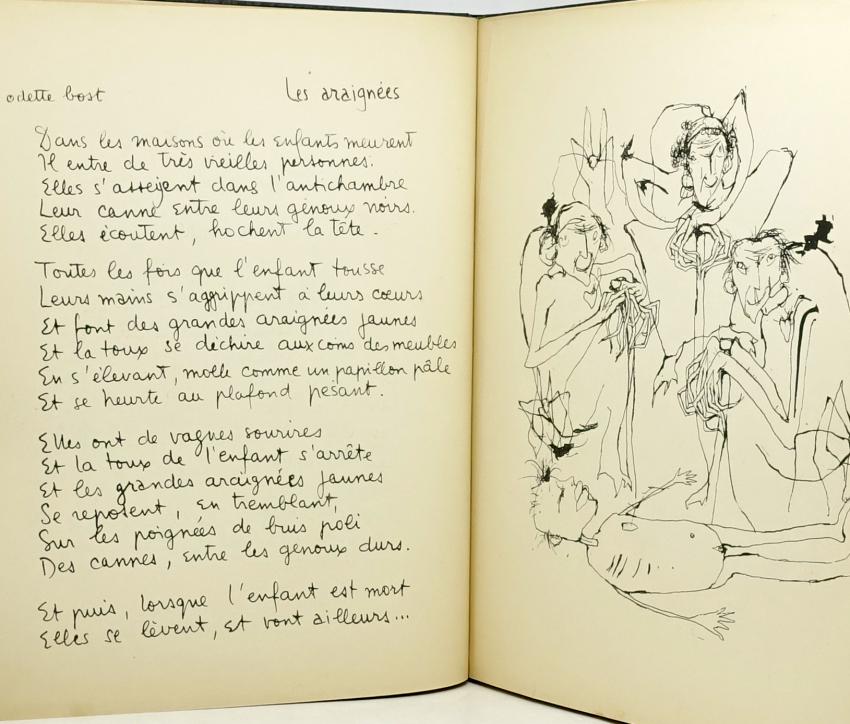 odette bost
Les araignées
Dans les maisons où les enfants meurent
Il entre de très vieilles personnes.
Elles s'asseyent dans l'antichambre
Leur canne entre leurs genoux noirs.
Elles écoutent, hochent la tête.
Toutes les fois que l'enfant tousse
Leurs mains s'aggrippent à leurs cœurs
Et font des grandes araignées jaunes
Et la toux se déchire aux coins des meubles
En s'élevant, molle comme un papillon pâle
Et se heurte au plafond pesant.
Elles ont de vagues sourires
Et la toux de l'enfant s'arrête
Et les grandes araignées jaunes
Se reposent, en tremblant,
Sur les poignées de buis poli
Des cannes, entre les genoux durs.
Et puis, lorsque l'enfant est mort
Elles se lèvent, et vont ailleurs...